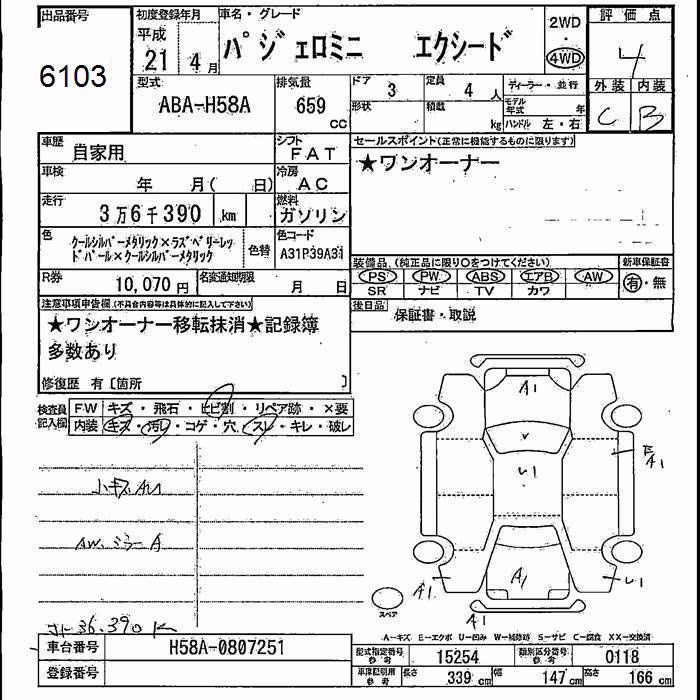 出品番号 初度登録年月 車名・グレード 2WD 評価点
平成 パジェロミニ エクシード ・ 4
6103 21 4月 4WD
型式 排気量 ドア 3 定員 4人 ディーラー・並行 外装 内装
ABA-H58A 659 形状 積載 モデル年式 年 C B
cc kg ハンドル 左・右
車歴 自家用 シフト FAT セールスポイント(正常に機能するものに限ります)
車検 年 月( 日) 冷房 AC ★ワンオーナー
走行 3万6千390 km 燃料 ガソリン
色 クールシルバーメタリック×ラズベリーレッ 色替 色コード
ドパール×クールシルバーメタリック A31P39A31
装備品 (純正品に限り○をつけてください) 新車保証書
R券 10,070円 名変通知期限 月 日 PS PW ABS エアB AW 有・無
SR ナビ TV カワ
注意事項申告欄(不具合内容等は具体的に記入して下さい) 後日品 保証書・取説
★ワンオーナー移転抹消★記録簿
多数あり
修復歴 有〔箇所 〕
検査員記入欄 FW キズ・飛石・ヒビ割・リペア跡・×要
内装 キズ・汚レ・コゲ・穴・スレ・キレ・破レ
A1
E A1
U1
小キズAU
AW、ミラーA
A1
A1 U1
スペア A1
36.390K
A-キズ E-エクボ U-凹み W-補修跡 S-サビ C-腐食 XX-交換済
車台番号 H58A-0807251 型式指定番号 参考 15254 類別区分番号 参考 0118
登録番号 車庫証明用 参考 長さ 339cm 幅 147cm 高さ 166cm